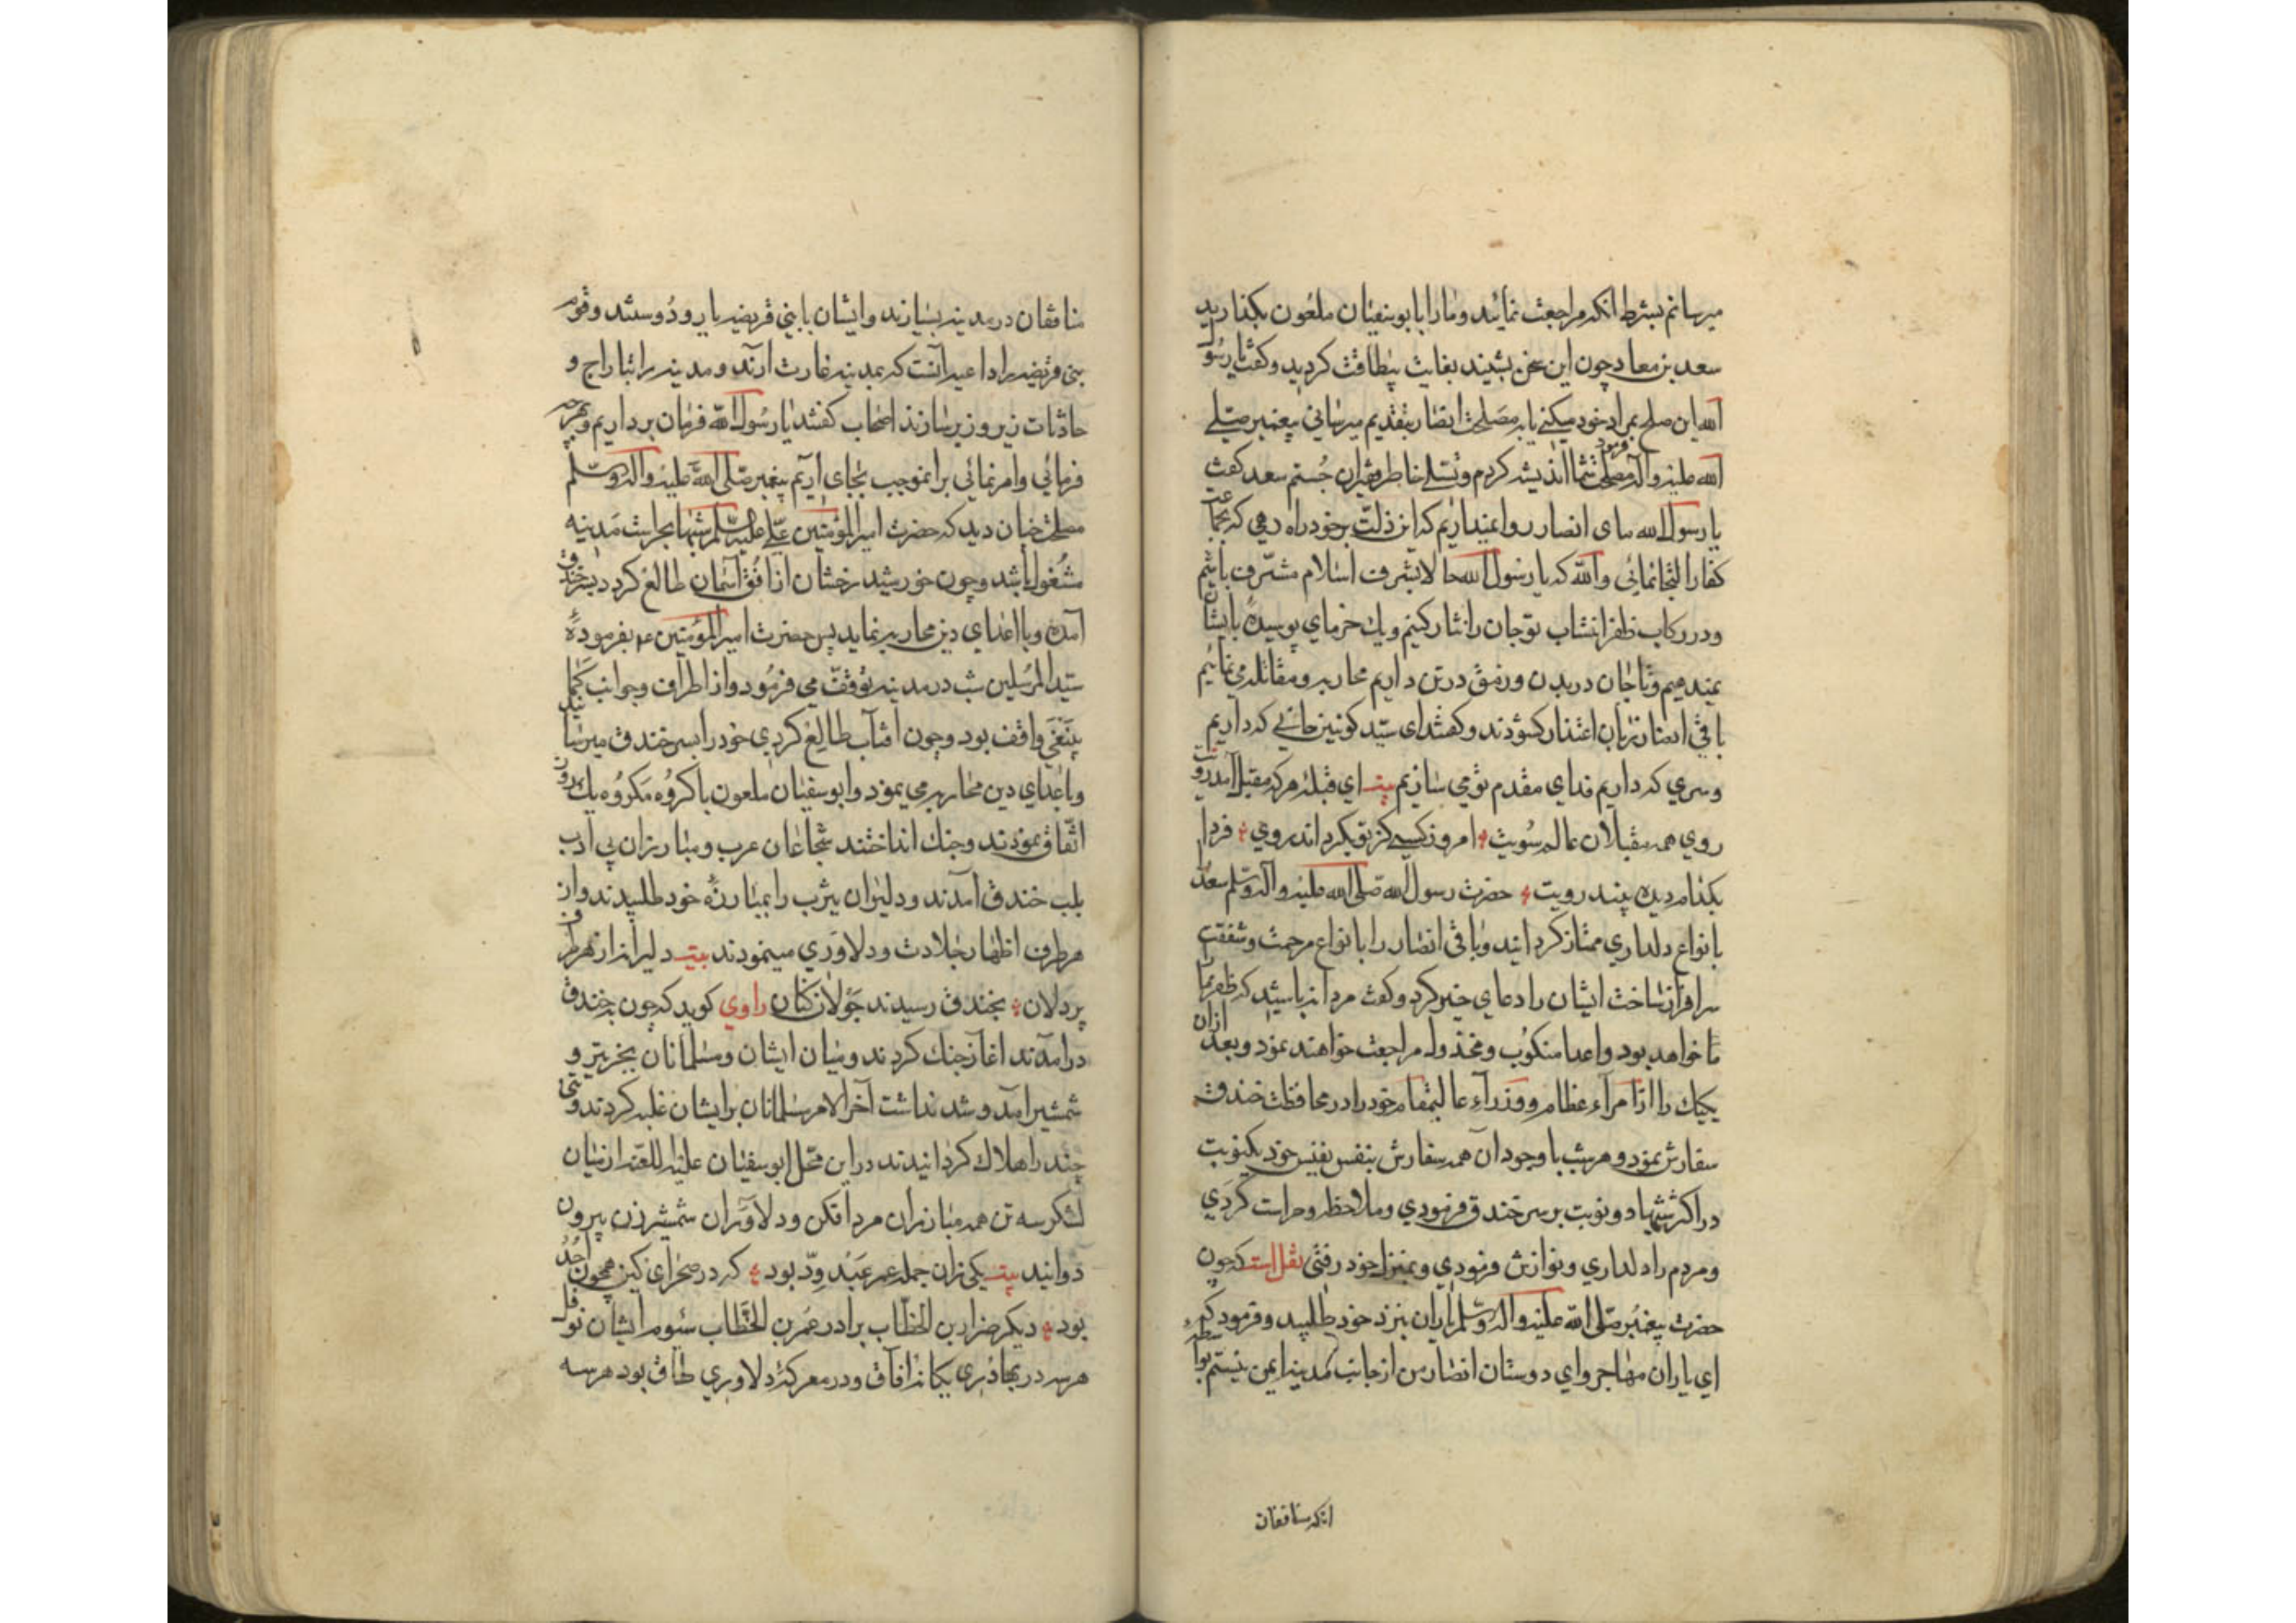 میرسانم بشرط انکه مراجعت نمائید و مارا بابوسفیان ملعون بکذارید
سعد بن معاد چون این سخن بشنید بغایت بیطاقت کردید و کفت یا رسول
الله این صلح بمراد خود میکنی یا به مصلحت انصار بتقدیم میرسانی پیغمبر صلی
الله علیه و آله فرمود مصلحت شما اندیشه کردم و تسلی خاطر جستم سعد کفت
یا رسول الله مای انصار روا نمیداریم که این ذلت بر خود راه دهی که بجماعت
کفار التجا نمائی والله که یا رسول الله حالا بشرف اسلام مشرف باشیم
و در رکاب ظفر انتساب تو جان را نثار کنیم و یك خرمای پوسیده بایشان
نمیدهیم و تا جان در بدن و رمق در تن داریم محاربه و مقاتله می نمائیم
باقی انصار زبان اعتذار کشودند و کفتند ای سید کونین جانی که داریم
و سری که داریم فدای مقدم تو می سازیم بیت ای قبله هر که مقبل آمد رویت
روی همه مقبلان عالم سویت امروز کسی کز تو بکرداند روی فردا
بکدام دیده بیند رویت حضرت رسول الله صلی الله علیه و آله وسلم سعد را
بانواع دلداری ممتاز کردانید و باقی انصار را بانواع مرحمت و شفقت
سرافراز ساخت ایشان را دعای خیر کرد و کفت مردانه باشید که ظفر
ما خواهد بود و اعدا منکوب و مخذول مراجعت خواهند نمود و بعد ازان
یکیك را از امراء عظام و وزراء عالیمقام خود را در محافظت خندق
سفارش نمود و هر شب با وجود آن همه سفارش بنفس نفیس خود یکنوبت
در اکثر شبها دو نوبت بر سر خندق فرمودی و ملاحظه و حراست کردی
و مردم را دلداری و نوازش فرمودی و بمنزل خود رفتی نقل است که چون
حضرت پیغمبر صلی الله علیه و آله وسلم یاران بنزد خود طلبید و فرمود که
ای یاران مهاجر و ای دوستان انصار من از جانب مدینه ایمن نیستم بواسطه
انکه منافقان
منافقان در مدینه بسیارند و ایشان بابنی قریضه یار و دوستند و قوم
بنی قریضه را داعیه آنست که بمدینه غارت ارند و مدینه را بتاراج و
حادثات زیر و زبر سازند اصحاب کفتند یا رسول الله فرمان برداریم و بهر چه
فرمائی و امر نمائی برانموجب بجای آریم پیغمبر صلی الله علیه و اله وسلم
مصلحت چنان دید که حضرت امیر المؤمنین علی علیه السلم شبها بحراست مدینه
مشغول باشد و چون خورشید رخشان از افق آسمان طالع کردد بسر خندق
آمده و با اعدای دین محاربه نماید پس حضرت امیر المؤمنین ع م بفرموده
سید المرسلین شب در مدینه توقف می فرمود و از اطراف و جوانب کما
ینبغی واقف بود و چون افتاب طالع کردی خود را بسر خندق میرسانید
و با عدای دین محاربه می نمود و ابوسفیان ملعون با کروه مکروه یك روز
اتفاق نمودند و جنك انداختند شجاعان عرب و مبارزان بی ادب
بلب خندق آمدند و دلیران یثرب را بمبارزه خود طلبیدند و از
هر طرف اظهار جلادت و دلاوری مینمودند بیت دلیران از هر طرف
پردلان بخندق رسیدند جولان کنان راوی کوید که چون بخندق
درامدند اغاز جنك کردند و میان ایشان و مسلمانان بجز تیر و
شمشیر آمد و شد نداشت آخر الامر مسلمانان برایشان غلبه کردند و تنی
چند را هلاك کردانیدند در این محل ابوسفیان علیه اللعنه از میان
لشکر سه تن همه مبارزان مردافکن و دلاوران شمشیرزن بیرون
دوانید بیت یکی زان جمله عمر عبد ود بود که در صحرای کین همچون احد
بود دیکر ضرار بن الخطاب برادر عمر بن الخطاب سئوم ایشان نوفل
هر سه در بهادری یکانه افاق و در معرکه دلاوری طاق بود هر سه